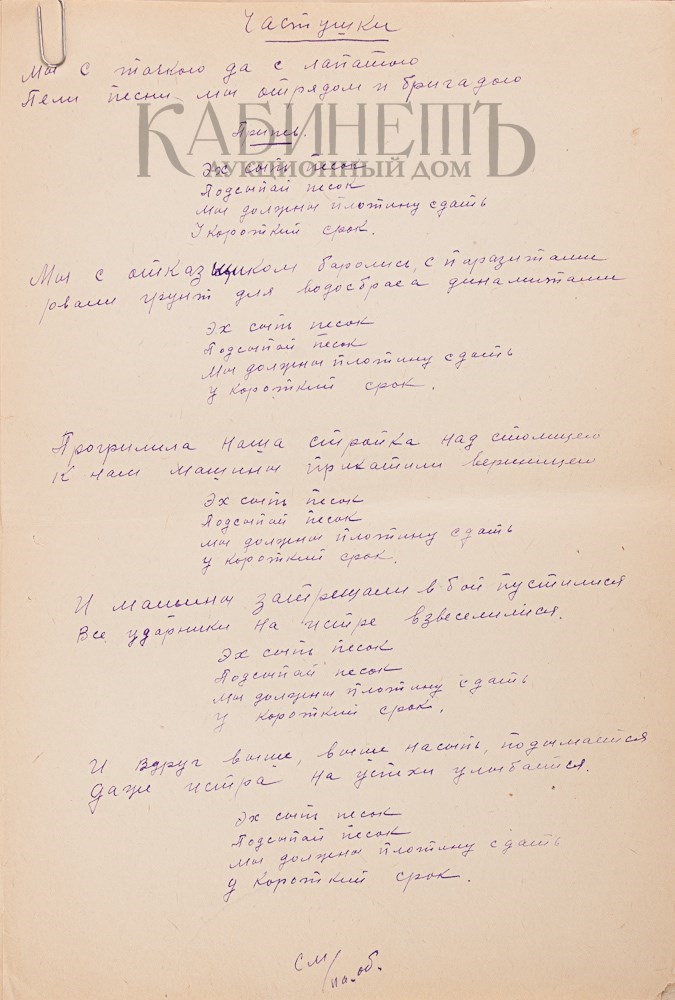 Частушки
Мы с тачкою да с лапатою
Пели песни мы отрядом и бригадою
КАБИНЕТЪ
АУКЦИОННЫЙ ДОМ
Припев.
Эх сыпь песок
Подсыпай песок
Мы должны плотину сдать
У короткий срок.
Мы с отказщиком боролись, с паразитами
рвали грунт для водосброса динамитами
Эх сыпь песок
Подсыпай песок
Мы должны плотину сдать
у короткий срок.
Прогримила наша стройка над столицею
К нам машины прикатили вериницею
Эх сыпь песок
Подсыпай песок
Мы должны плотину сдать
у короткий срок.
И машины затрещали в бой пустилися
Все ударники на истре взвеселилися.
Эх сыпь песок
Подсыпай песок
Мы должны плотину сдать
у короткий срок.
И вдруг выше, выше насыпь, подымается
даже истра на успехи улыбается.
Эх сыпь песок
Подсыпай песок
Мы должны плотину сдать
у короткий срок.
см/на об.